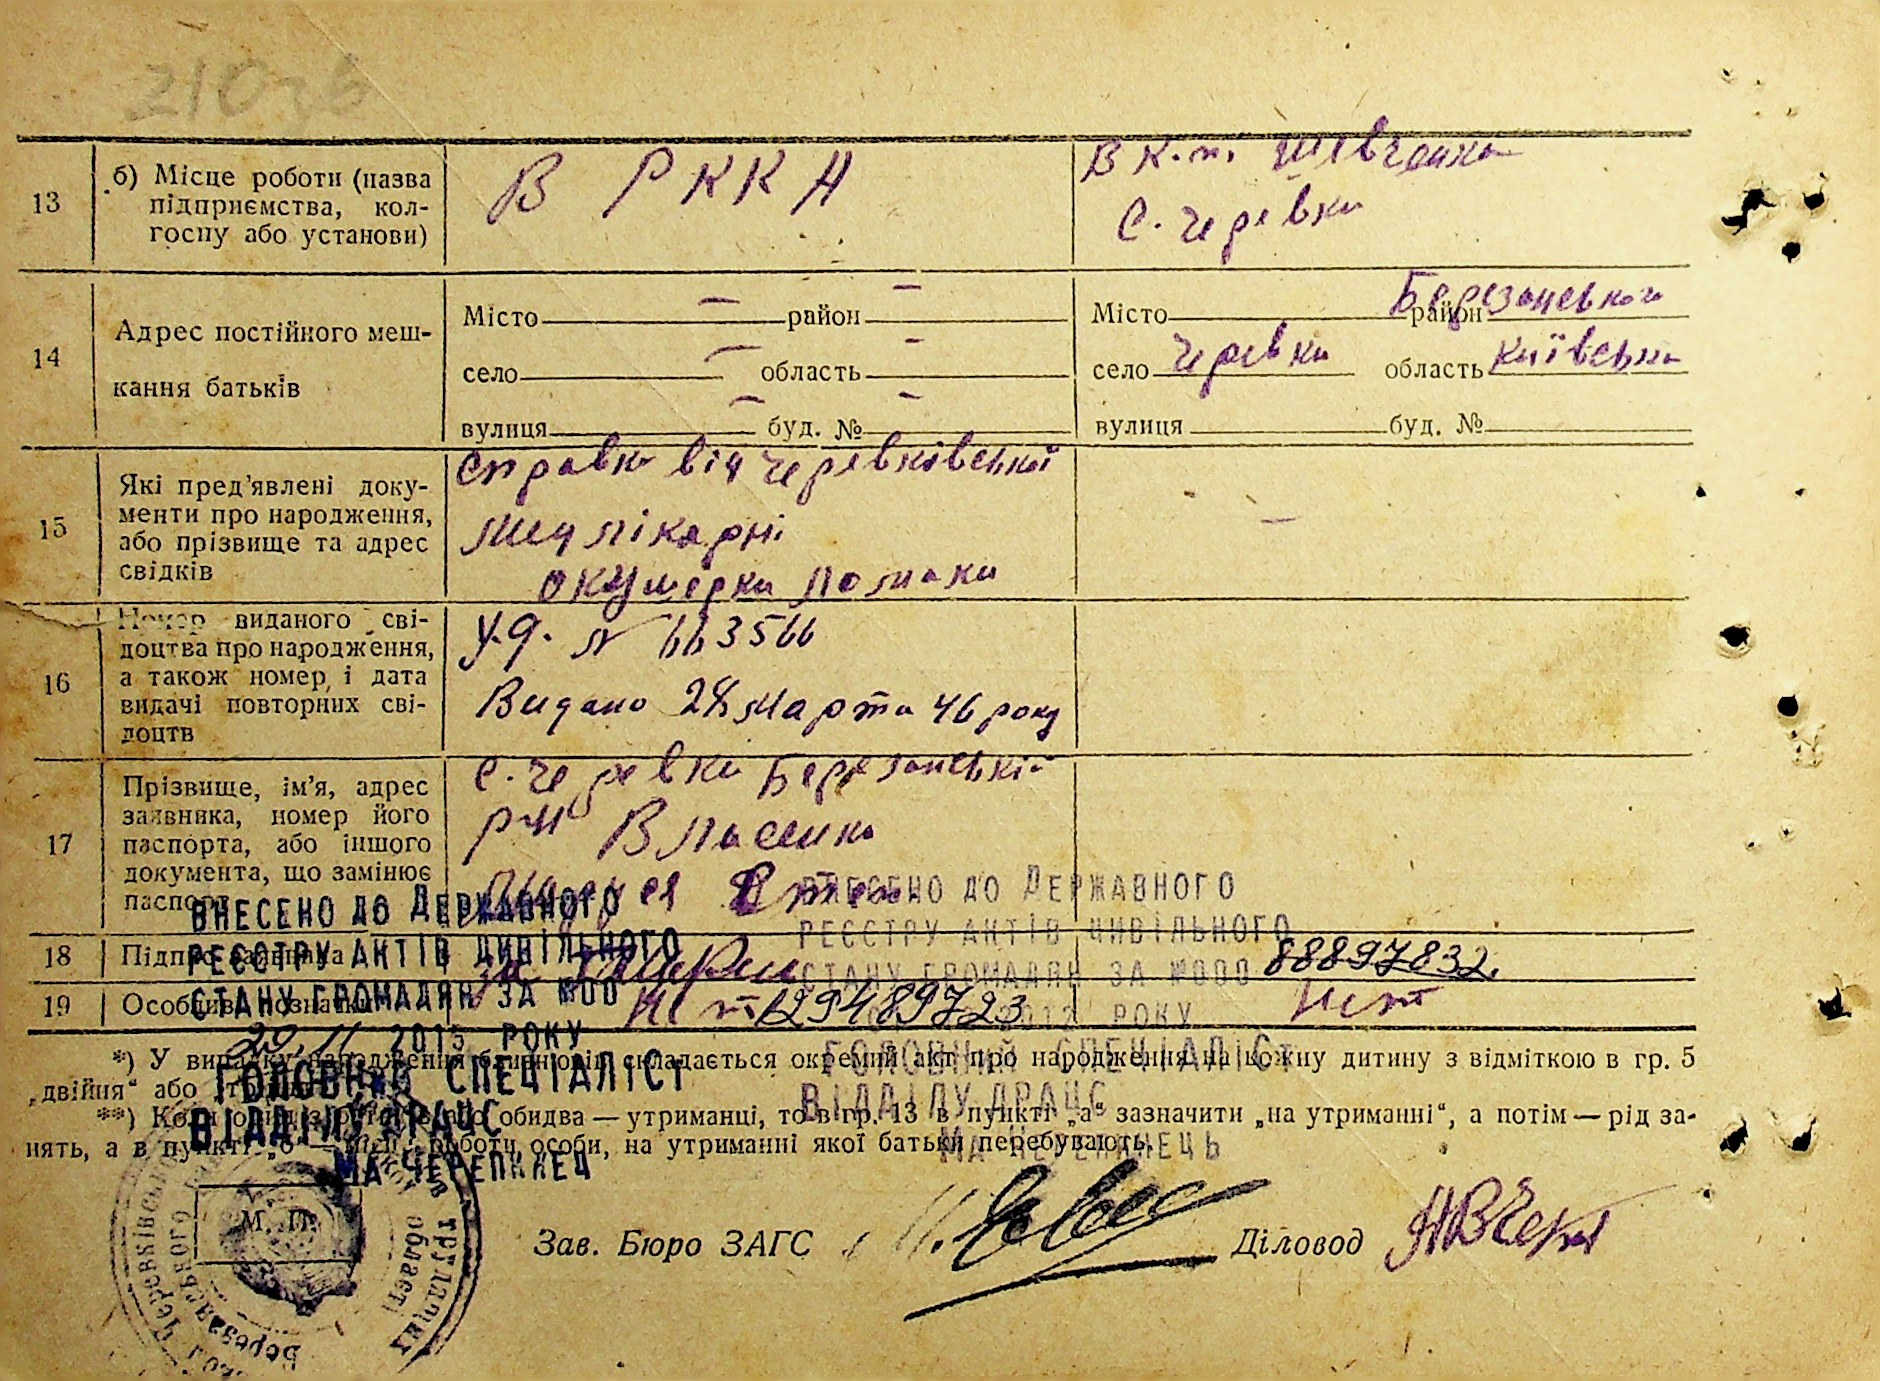 13 б) Місце роботи (назва підприємства, кол-
госпу або установи)
В РККА
В к.п. Шевченка
С. Черевки
14 Адрес постійного меш-
кання батьків
Місто — район —
село — область —
вулиця — буд. № —
Місто район Березанського
село Черевки область Київська
вулиця буд. №
15 Які пред'явлені доку-
менти про народження,
або прізвище та адрес
свідків
Справка від Черевківської
лікарні
окушерки
—
16 Номер виданого сві-
доцтва про народження,
а також номер і дата
видачі повторних сві-
доцтв
У.Д. № 663566
Видано 28 марта 46 року
17 Прізвище, ім'я, адрес
заявника, номер його
паспорта, або іншого
документа, що замінює
паспорт
С. Черевки Березанській
р-н Власенко
18 Підпис заявника
19 Особливі позначки
Нет
Нет
88897832.
129489723
ВНЕСЕНО ДО ДЕРЖАВНОГО
РЕЄСТРУ АКТІВ ЦИВІЛЬНОГО
СТАНУ ГРОМАДЯН ЗА №00
20.11 2015 РОКУ
ГОЛОВНИЙ СПЕЦІАЛІСТ
ВІДДІЛУ ДРАЦС
МА ЧЕРЕПИНЕЦЬ
ВНЕСЕНО ДО ДЕРЖАВНОГО
РЕЄСТРУ АКТІВ ЦИВІЛЬНОГО
СТАНУ ГРОМАДЯН ЗА №000
2012 РОКУ
ГОЛОВНИЙ СПЕЦІАЛІСТ
ВІДДІЛУ ДРАЦС
МА ЧЕРЕПИНЕЦЬ
*) У випадку народження близнюків складається окремий акт про народження на кожну дитину з відміткою в гр. 5
„двійня“ або
**) Коли обидва — утриманці, то в гр. 13 в пункті „а“ зазначити „на утриманні“, а потім — рід за-
нять, а в пункті „б“ — місце роботи особи, на утриманні якої батьки перебувають.
М. П.
Зав. Бюро ЗАГС
Діловод